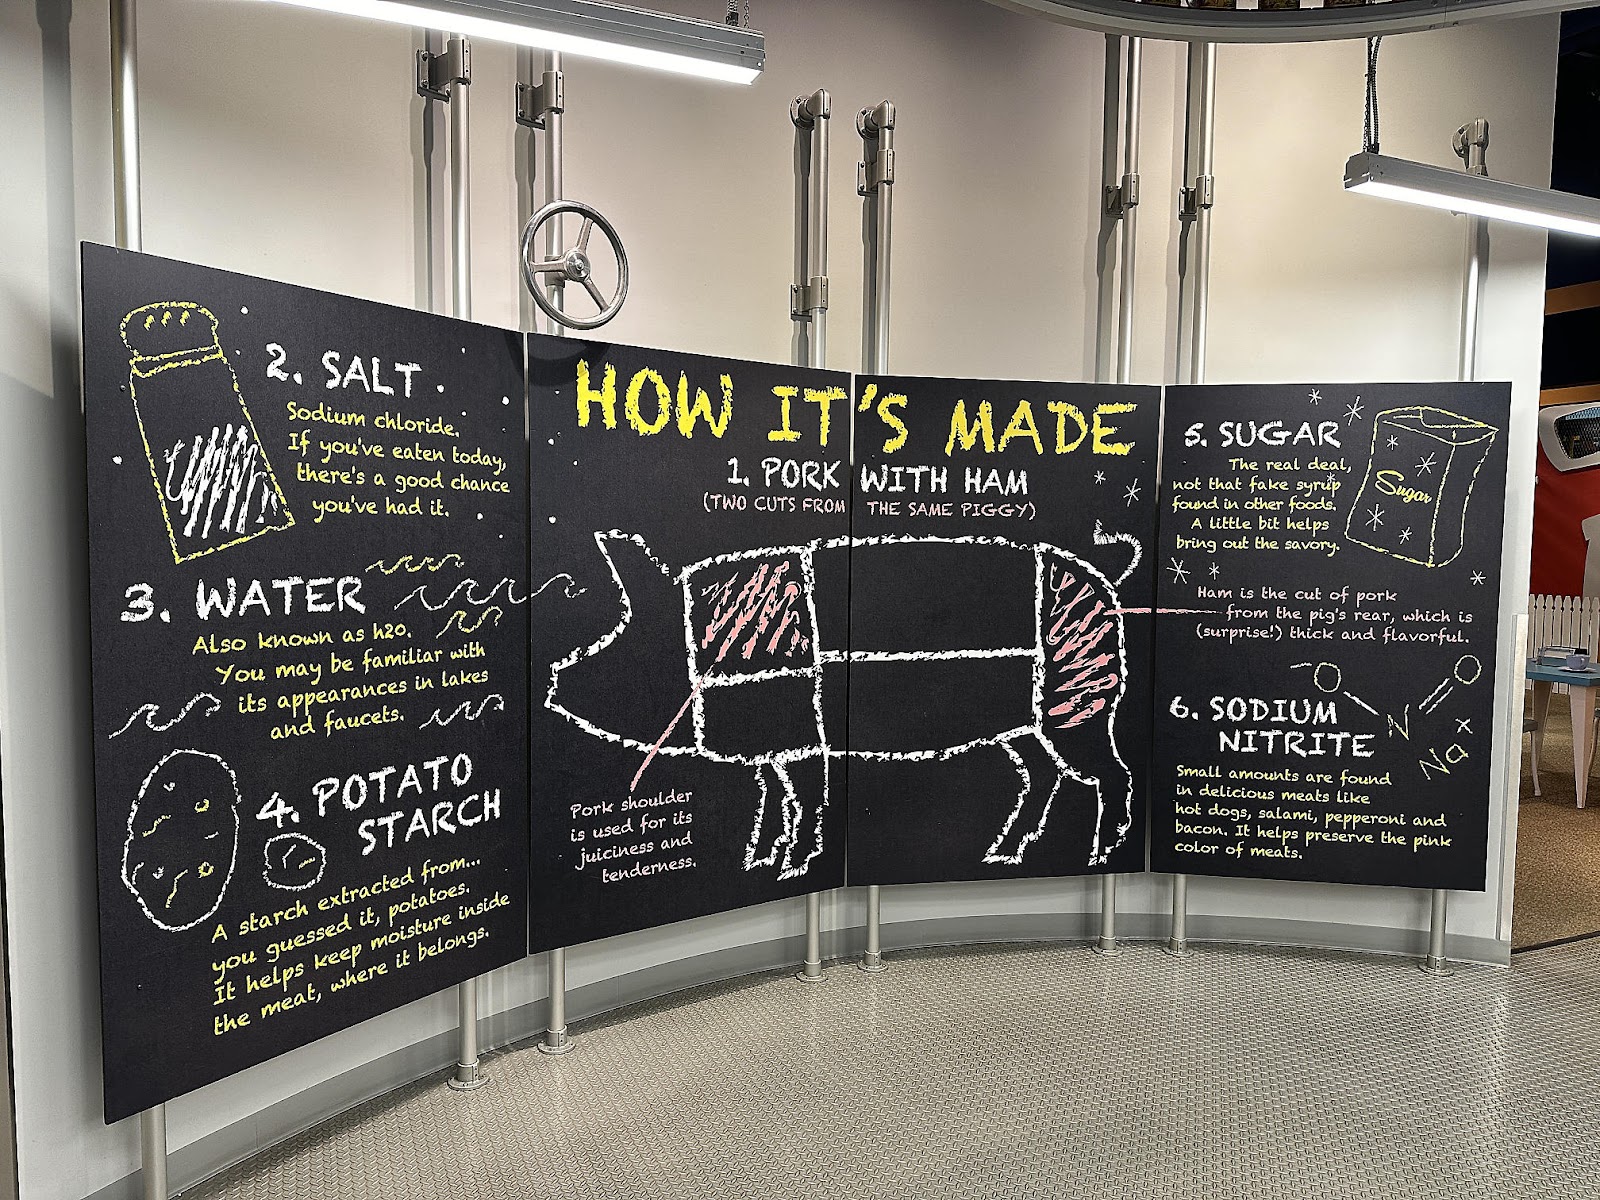 HOW IT'S MADE
1. PORK WITH HAM
(TWO CUTS FROM THE SAME PIGGY)
Pork shoulder
is used for its
juiciness and
tenderness.
Ham is the cut of pork
from the pig's rear, which is
(surprise!) thick and flavorful.
2. SALT
Sodium chloride.
If you've eaten today,
there's a good chance
you've had it.
3. WATER
Also known as h2o.
You may be familiar with
its appearances in lakes
and faucets.
4. POTATO
STARCH
A starch extracted from...
you guessed it, potatoes.
It helps keep moisture inside
the meat, where it belongs.
5. SUGAR
The real deal,
not that fake syrup
found in other foods.
A little bit helps
bring out the savory.
Sugar
6. SODIUM
NITRITE
Small amounts are found
in delicious meats like
hot dogs, salami, pepperoni and
bacon. It helps preserve the pink
color of meats.
O N O
Na+